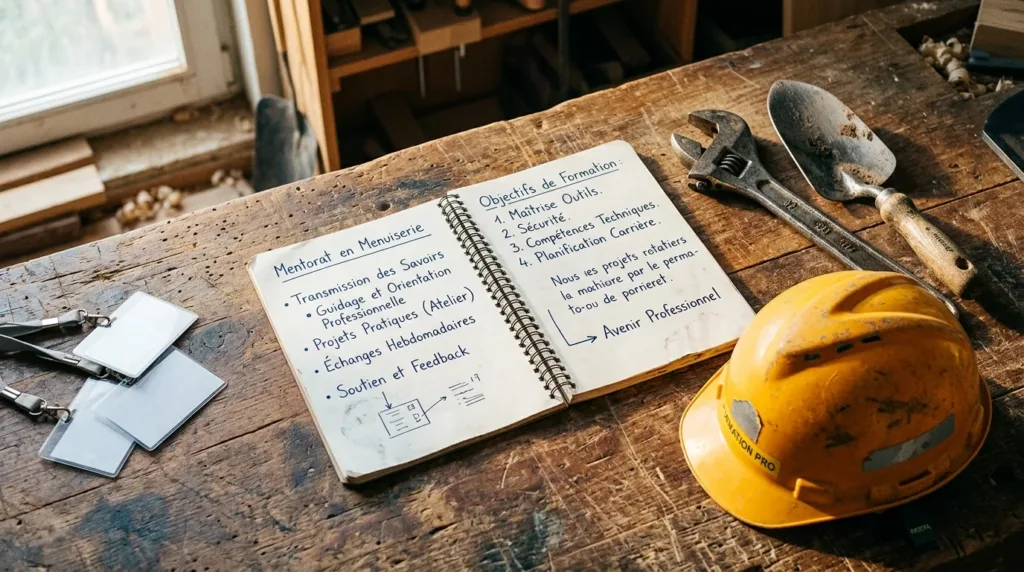 Mentorat en Menuiserie
• Transmission des Savoirs
• Guidage et Orientation
Professionnelle
• Projets Pratiques (Atelier)
• Échanges Hebdomadaires
• Soutien et Feedback
Objectifs de Formation :
1. Maîtrise Outils.
2. Sécurité.
3. Compétences Techniques.
4. Planification Carrière.
Nous ies projets rotatiers
la mahiore par le perma-
to-ou de parieret.
Avenir Professionnel
FORMATION PRO